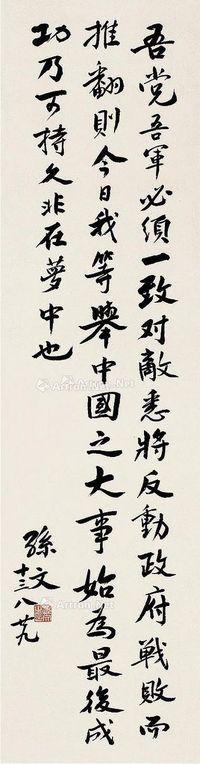 吾党吾軍必須一致对敵悉將反動政府戰敗而
推翻則今日我等舉中國之大事始為最後成
功乃可持久非在夢中也
孫文
十三八廿九
Artron.Net